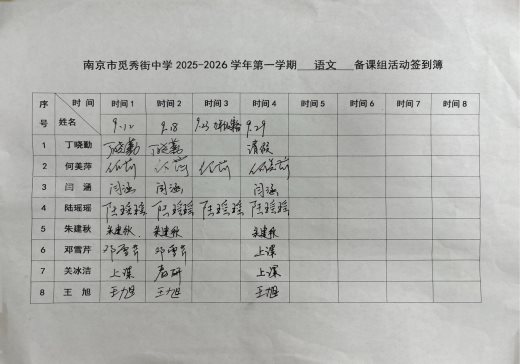 南京市觅秀街中学2025-2026学年第一学期 语文 备课组活动签到簿
序号 时间 姓名 时间1 时间2 时间3 时间4 时间5 时间6 时间7 时间8
9.12 9.18 9.25 9.29
1 丁晓勤 丁晓勤 丁晓勤 请假
2 何美萍
3 闫涵 闫涵 闫涵 闫涵
4 陆瑶瑶 陆瑶瑶 陆瑶瑶 陆瑶瑶 陆瑶瑶
5 朱建秋 朱建秋 朱建秋 朱建秋
6 邓雪芹 邓雪芹 邓雪芹 上课
7 关冰洁 上课 教研 上课
8 王旭 王旭 王旭 王旭